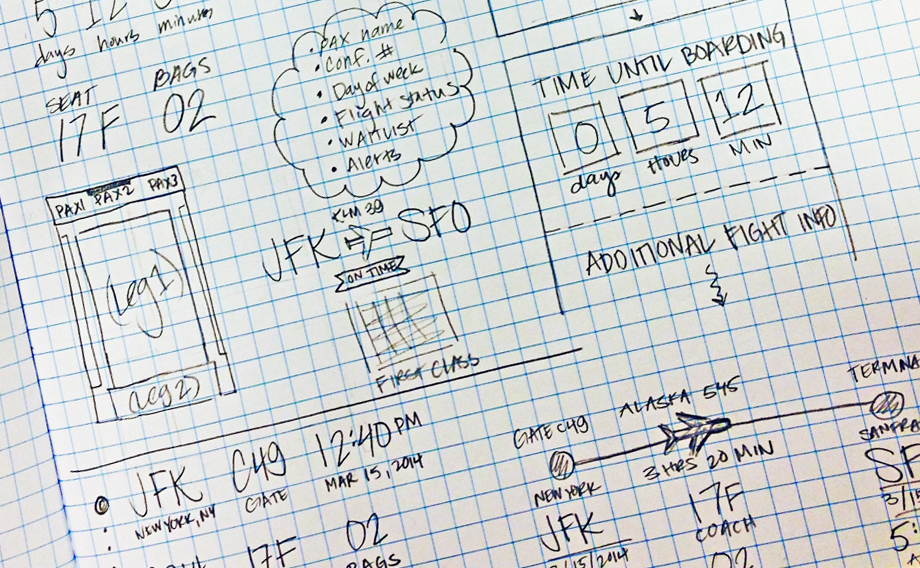 5 12
days hours minutes
SEAT BAGS
17F 02
• PAX name
• Conf. #
• Day of week
• Flight status
• WAITLIST
• Alerts
TIME UNTIL BOARDING
0 5 12
days HOURS MIN
ADDITIONAL FIGHT INFO
PAX1 PAX2 PAX3
(Leg1)
(Leg2)
KLM 39
JFK SFO
ON TIME
FIRST CLASS
JFK C49 12:40 PM
NEW YORK, NY GATE MAR 15, 2014
17F 02
BAGS
GATE C49 ALASKA 545 TERMINA
3 HRS 20 MIN
NEW YORK SANFRA
JFK 17F SF
COACH
3/15/2014 3/15
02 5: